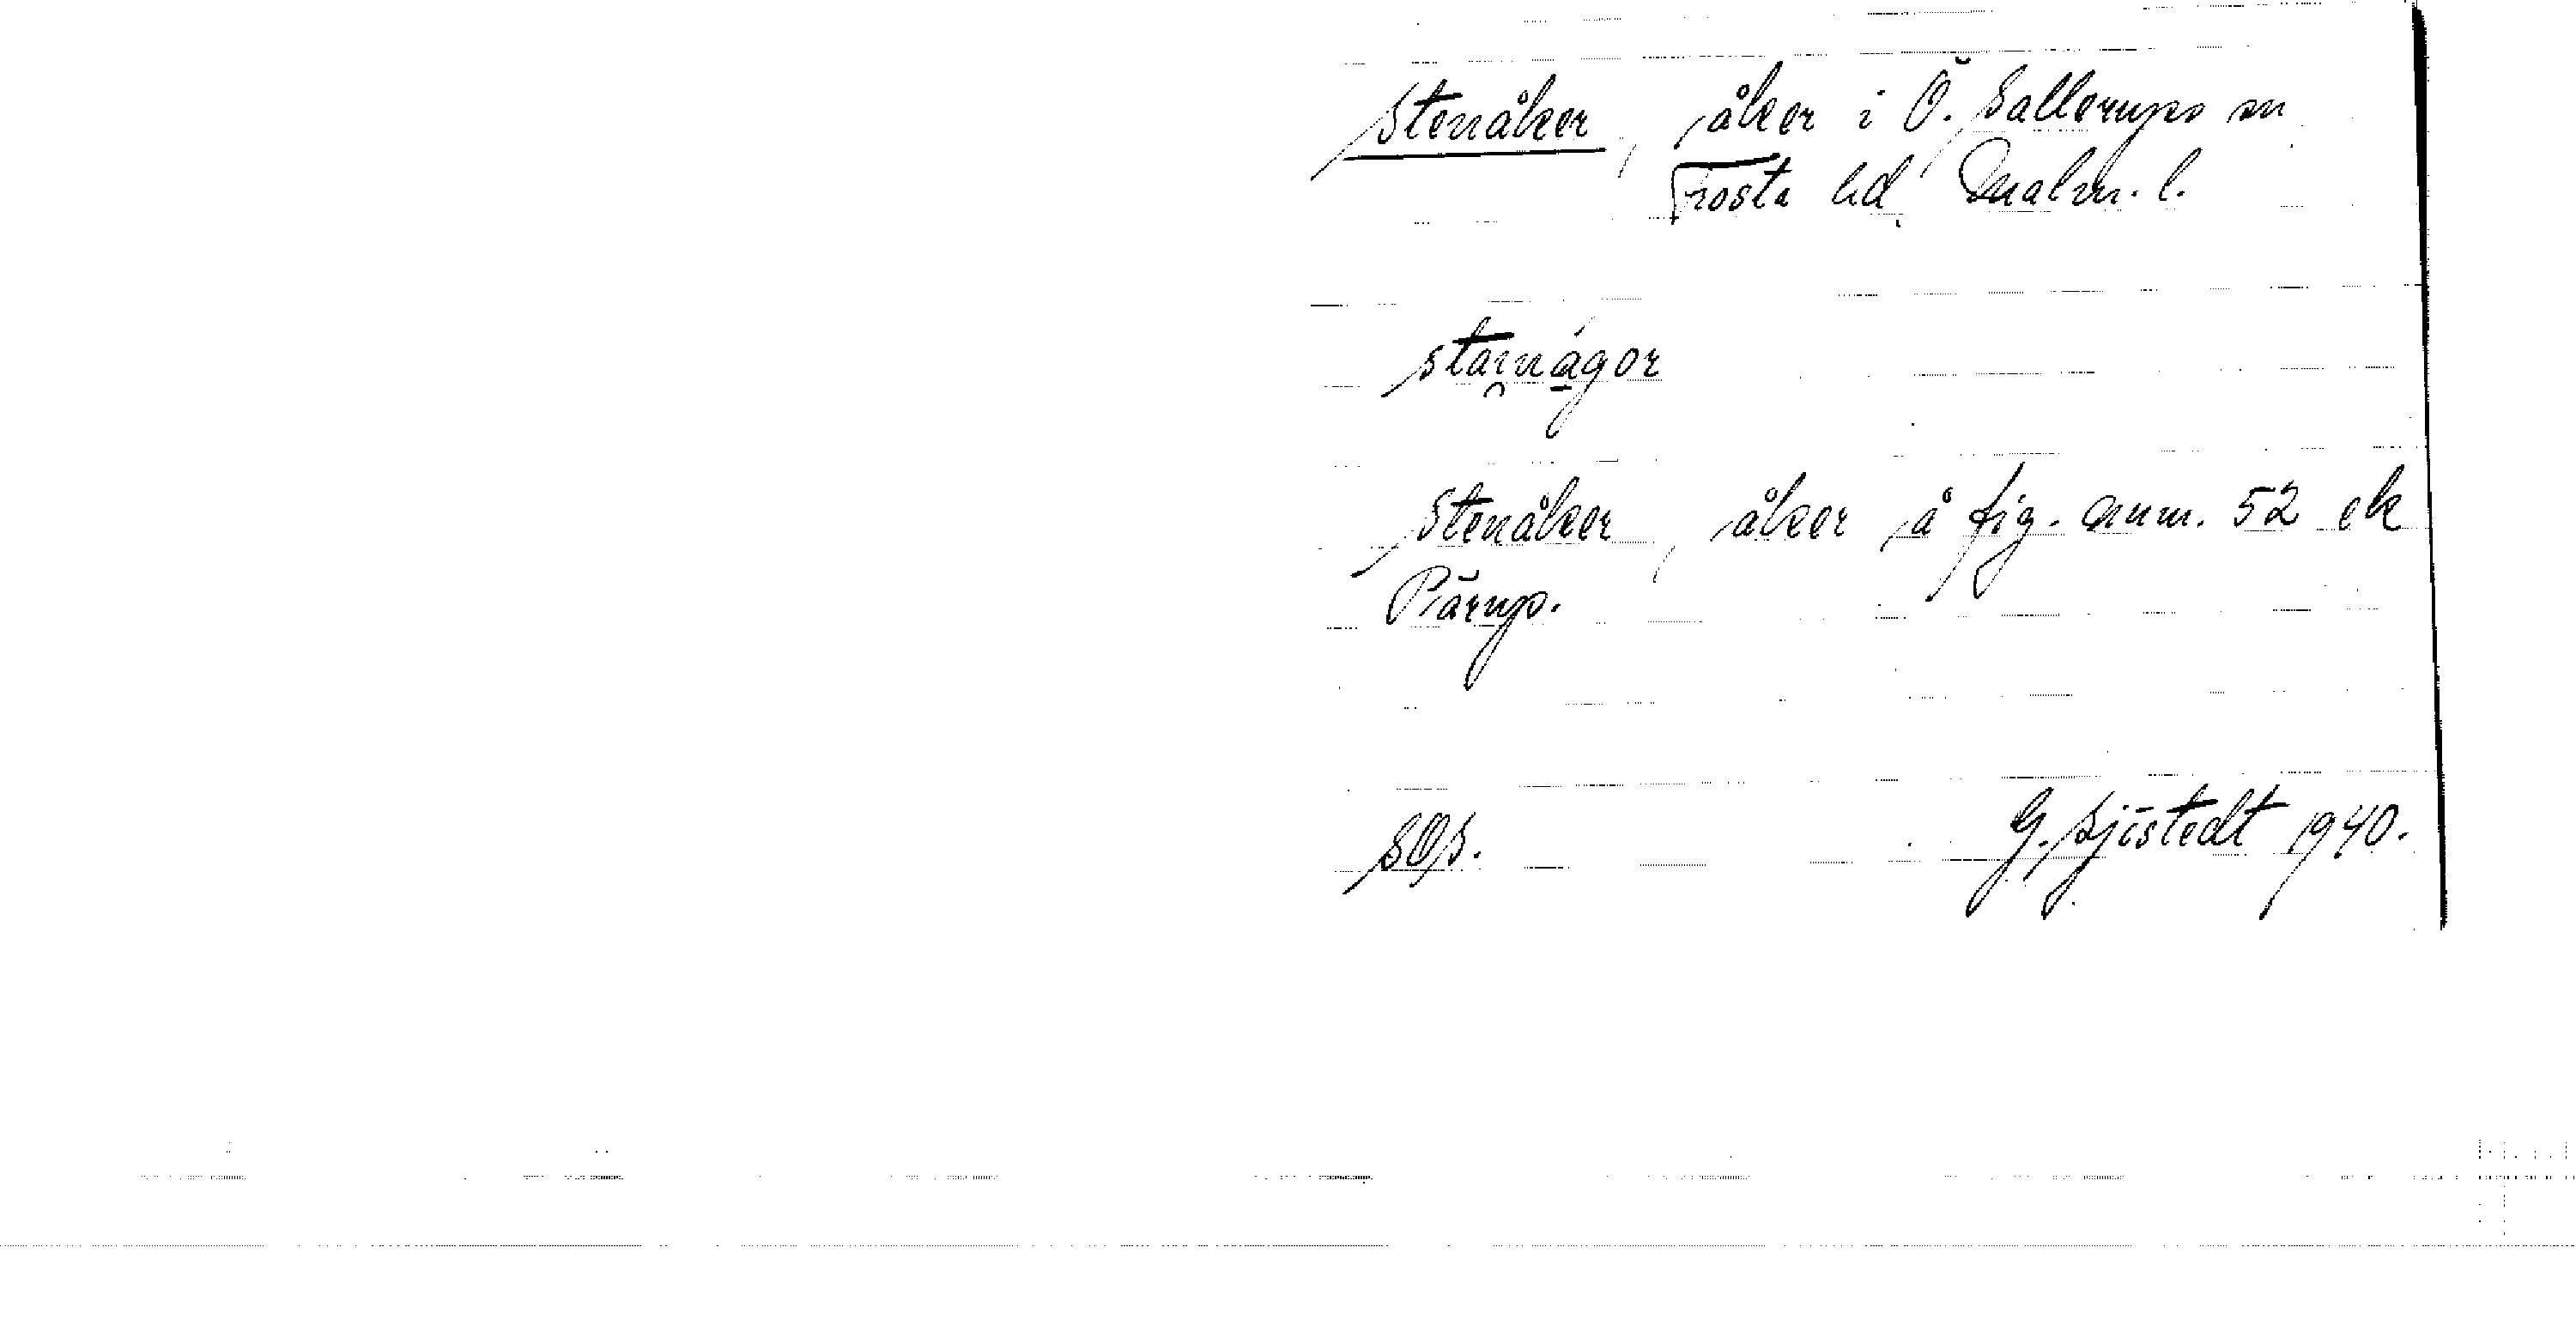 Stenåker, åker i Ö. Sallerups sn
Frosta hd, Malm. l.
stai̯nágor
Stenåker, åker å fig. num. 52 ek
Pärup.
SOS. G. Sjöstedt 1940.